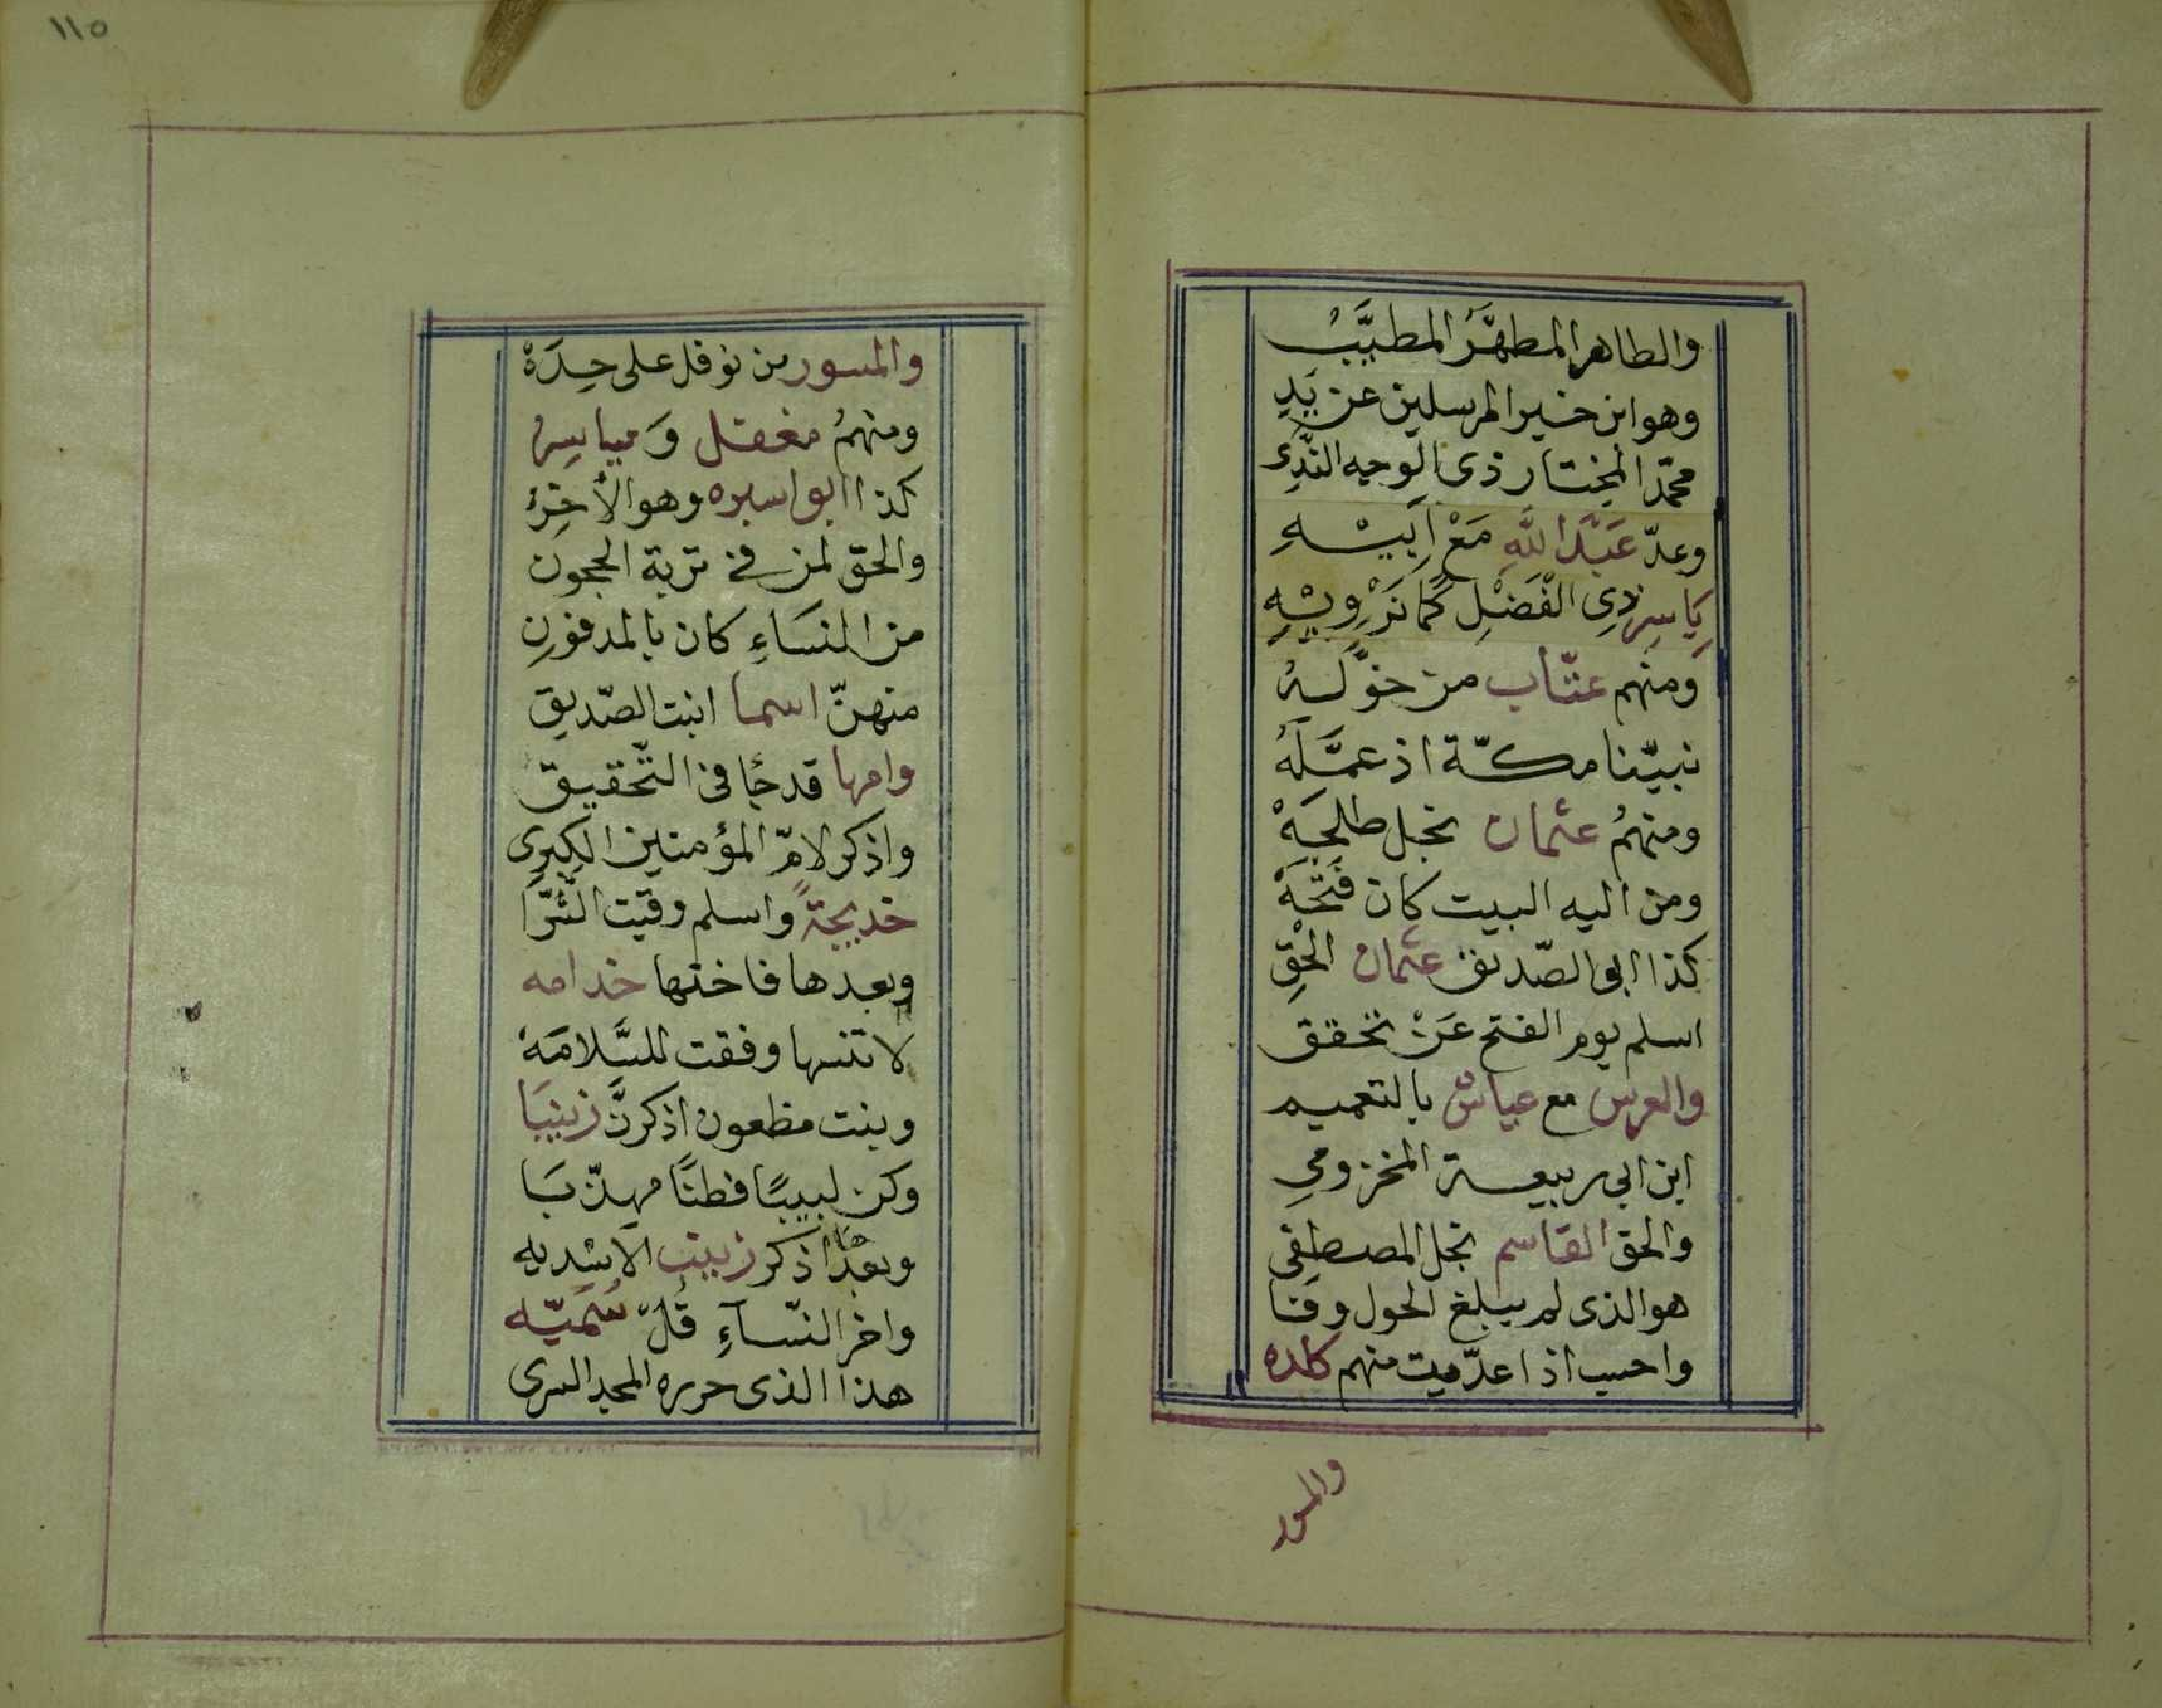 والطاهر المطهَّرُ المطيَّبُ
وهو ابن خير المرسلين عن يَدِ
محمّد المختار ذى الوجه النَّدِى
وعدّ عَبْدَ اللّهِ مَعْ اَبِيْهِ
يَاسِرِ ذِى الْفَضْلِ كَمَا نَرْوِيْهِ
ومنهم عتّاب من خوَّلَهُ
نبيّنا مكّة اذ عمَّلَهُ
ومنهمُ عثمان نجل طلحَهْ
ومن اليه البيت كان فَتْحَهْ
كذا ابى الصّديق عثمان الْحِقِ
اسلم يوم الفتح عَنْ تحقق
والعرس مع عياش بالتعميم
ابن ابى ربيعة المخزومي
والحق القاسم نجل المصطفى
هو الذى لم يبلغ الحول وفَا
واحسب اذا عدّيت منهم كلده
والمسور
١١٥
والمسور من نوفل على حِدَهْ
ومنهمُ مغفل وَمياسرُ
كذا ابو اسبره وهو الأخِرُ
والحق لمن في تربة الحجون
من النسَاءِ كان بالمدفون
منهنّ اسما ابنت الصّديق
وامها قد جَا فى التّحقيق
واذكر لامّ المؤمنين الكبرى
خديجةً واسلم وقيت الشّرَّا
وبعدها فاختها خدامه
لا تنسها وفقت للسَّلامَهْ
وبنت مظعون اذكرنَّ زينبَا
وكن لبيبًا فطنًا مهذّبَا
وبعدها اذكر زينب الاسْديه
واخر النّسآءِ قُلْ سُمَيّه
هذا الذى حرره المجد السرى